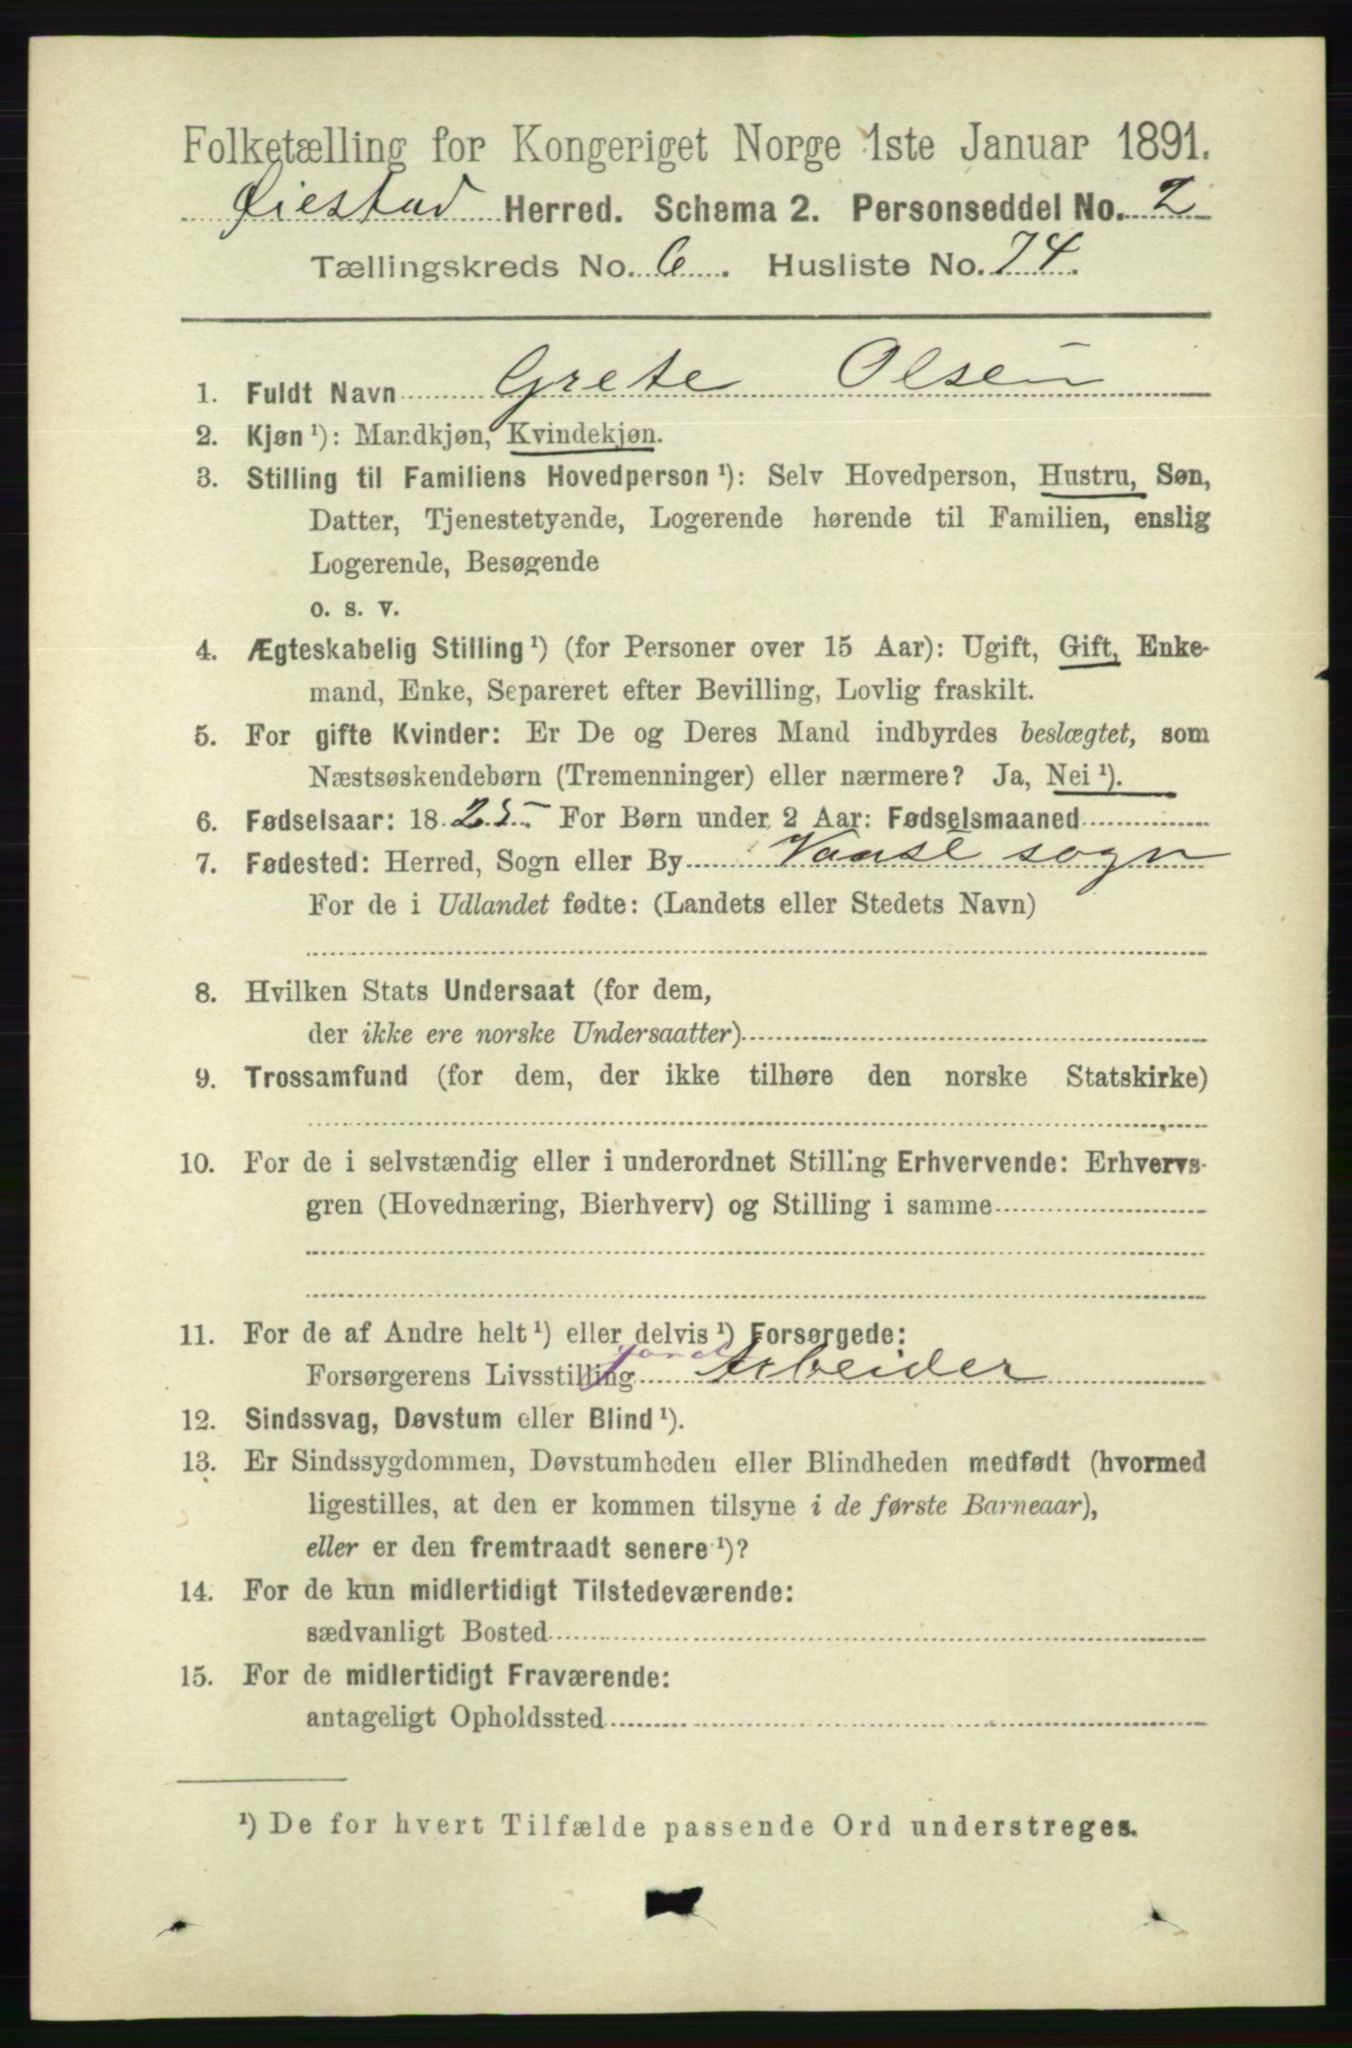 Folketælling for Kongeriget Norge 1ste Januar 1891.
Øiestad Herred. Schema 2. Personseddel No. 2
Tællingskreds No. 6. Husliste No. 74.
1. Fuldt Navn Grete Olsen
2. Kjøn ¹): Mandkjøn, Kvindekjøn.
3. Stilling til Familiens Hovedperson ¹): Selv Hovedperson, Hustru, Søn,
Datter, Tjenestetyende, Logerende hørende til Familien, enslig
Logerende, Besøgende
o. s. v.
4. Ægteskabelig Stilling ¹) (for Personer over 15 Aar): Ugift, Gift, Enke-
mand, Enke, Separeret efter Bevilling, Lovlig fraskilt.
5. For gifte Kvinder: Er De og Deres Mand indbyrdes beslægtet, som
Næstsøskendebørn (Tremenninger) eller nærmere? Ja, Nei ¹).
6. Fødselsaar: 1825. For Børn under 2 Aar: Fødselsmaaned
7. Fødested: Herred, Sogn eller By Vanse sogn
For de i Udlandet fødte: (Landets eller Stedets Navn)
8. Hvilken Stats Undersaat (for dem,
der ikke ere norske Undersaatter)
9. Trossamfund (for dem, der ikke tilhøre den norske Statskirke)
10. For de i selvstændig eller i underordnet Stilling Erhvervende: Erhvervs-
gren (Hovednæring, Bierhverv) og Stilling i samme
11. For de af Andre helt ¹) eller delvis ¹) Forsørgede:
Forsørgerens Livsstilling Arbeider
12. Sindssvag, Døvstum eller Blind ¹).
13. Er Sindssygdommen, Døvstumheden eller Blindheden medfødt (hvormed
ligestilles, at den er kommen tilsyne i de første Barneaar),
eller er den fremtraadt senere ¹)?
14. For de kun midlertidigt Tilstedeværende:
sædvanligt Bosted
15. For de midlertidigt Fraværende:
antageligt Opholdssted
¹) De for hvert Tilfælde passende Ord understreges.